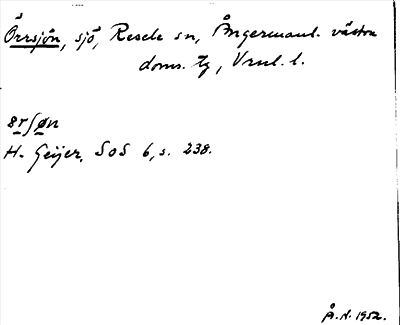 Örrsjön, sjö, Resele sn, Ångermanl. västra
doms. tg, Vrnl. l.
8rʃøn
H. Geijer, SoS 6, s. 238.
Å. N. 1952.